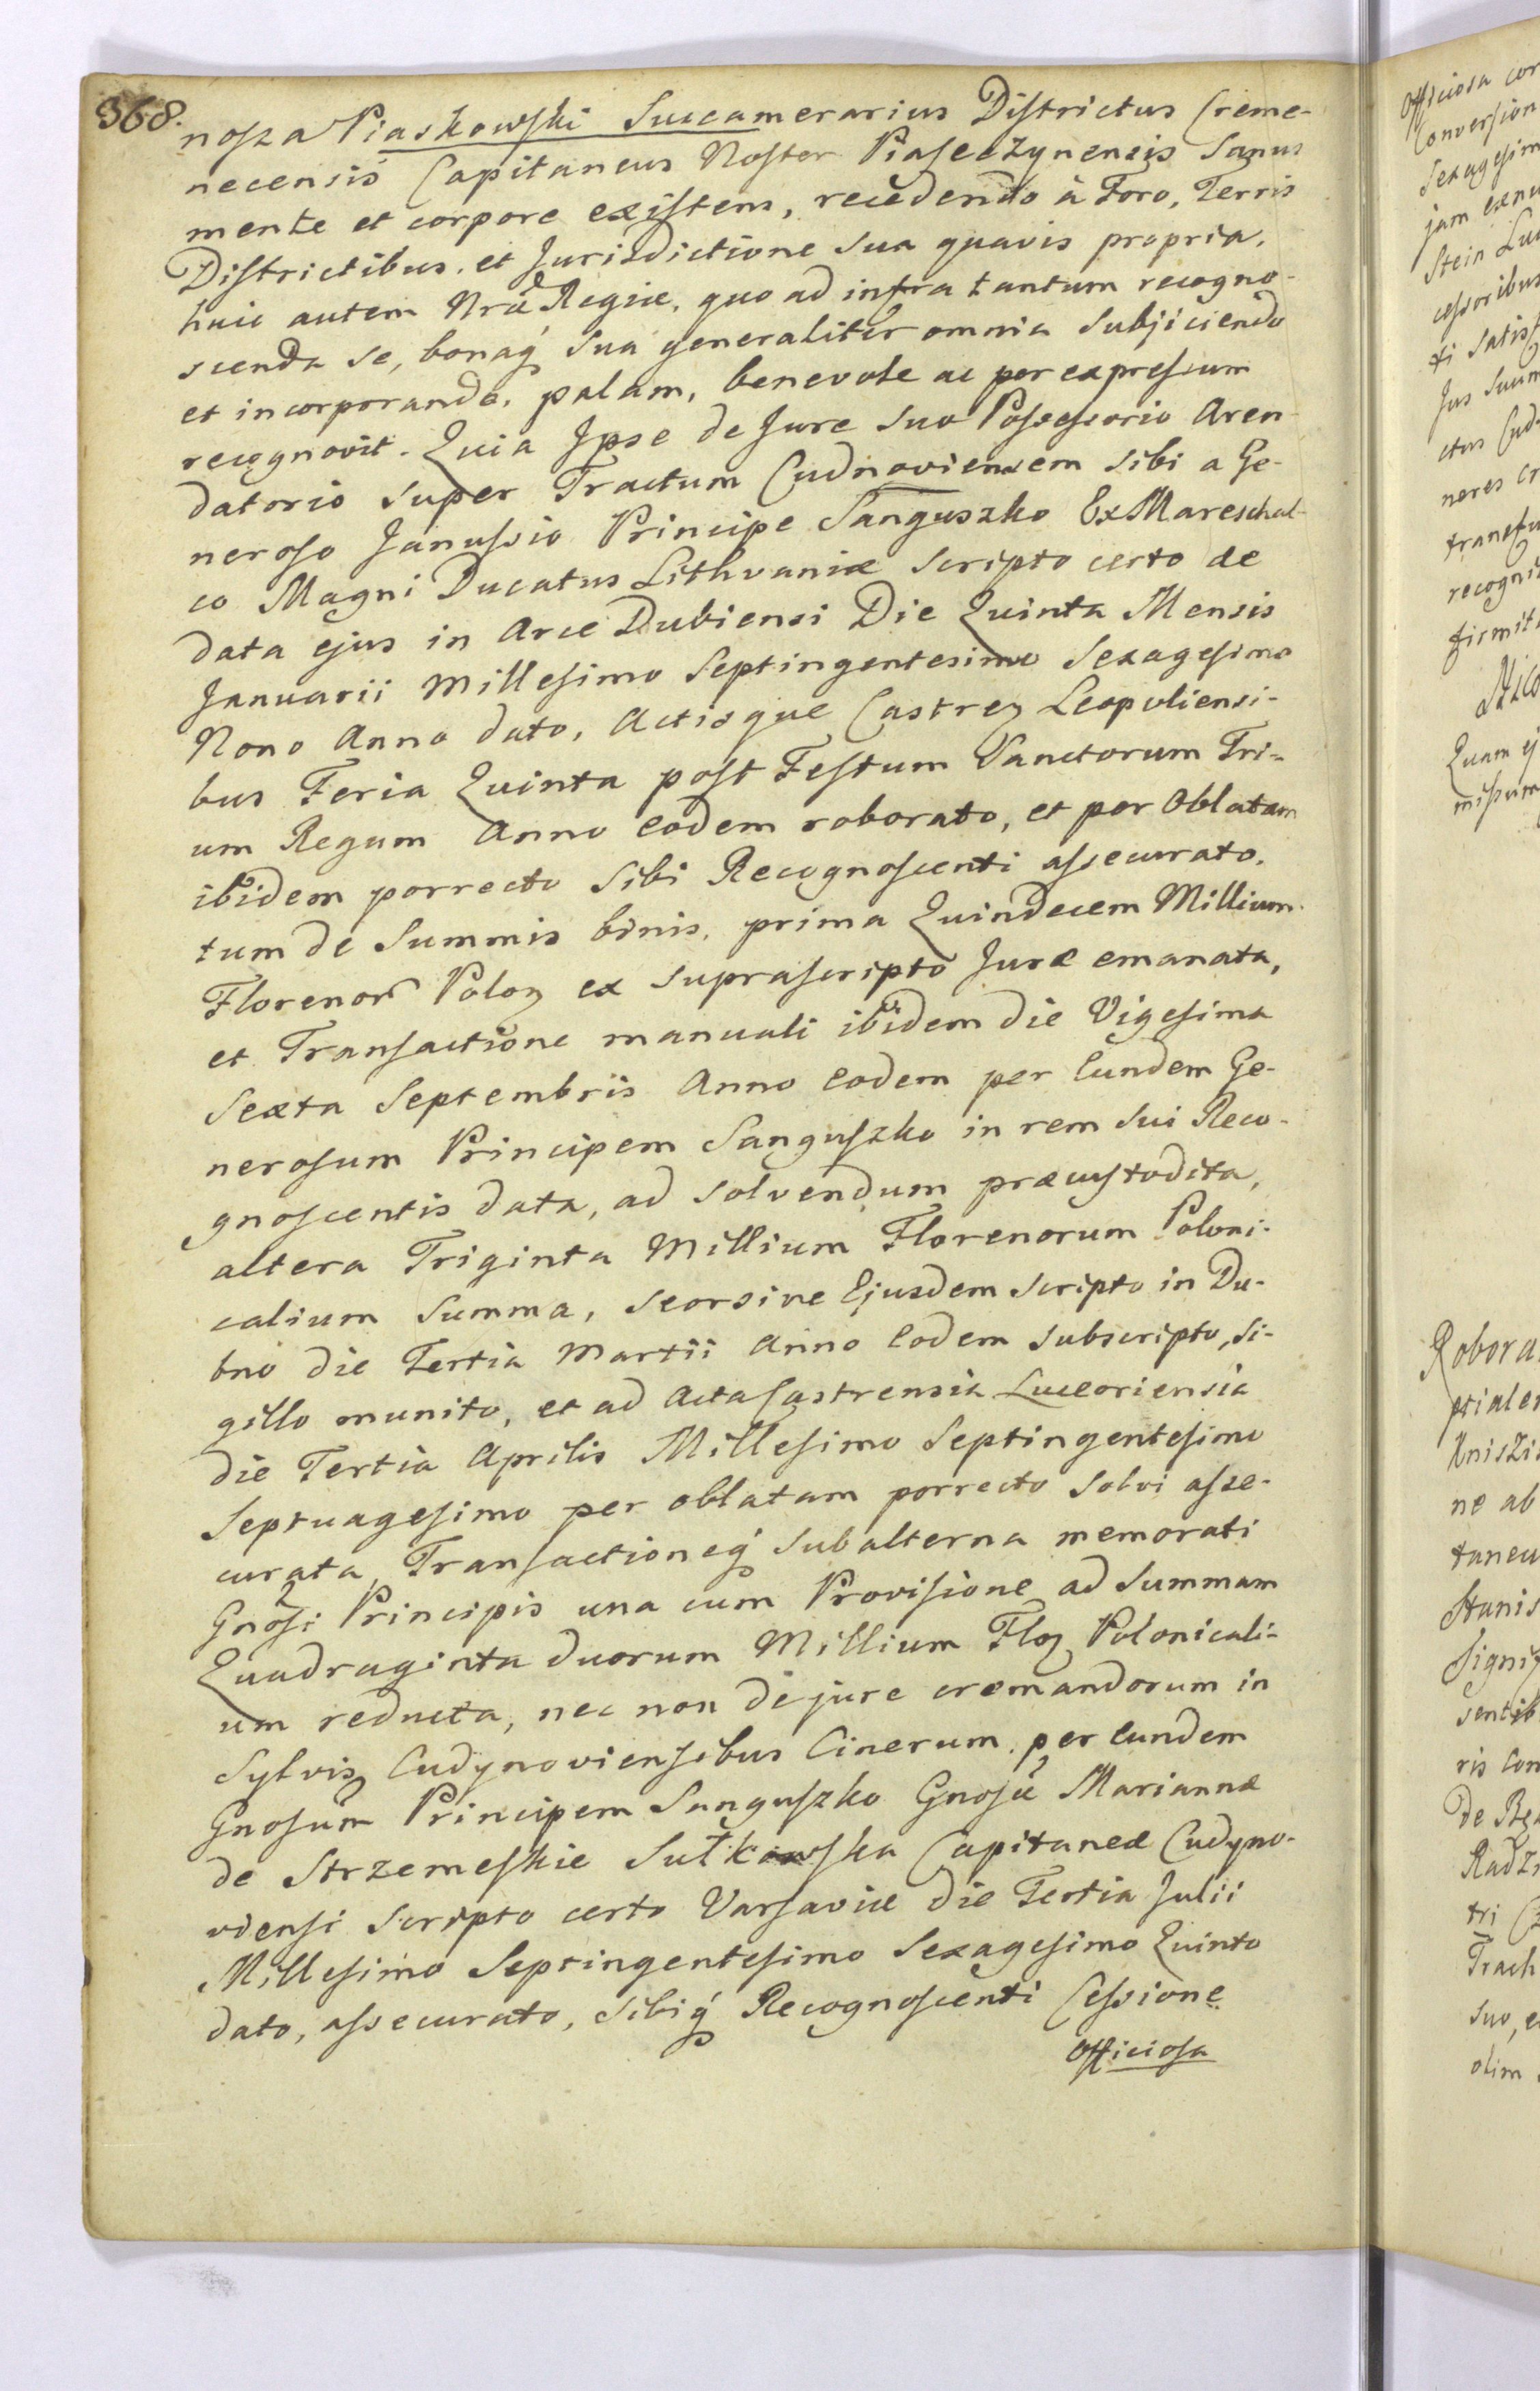 368.
nosza Piaskowski Succamerarius Districtus Creme-
necensis Capitaneus Noster Piaseczynensis Sanus
mente et corpore existens, recedendo à Foro, Terris
Districtibus, et Jurisdictione sua quavis propria,
huic autem Nrae Regiae, quo ad infra tantum recogno-
scenda se, bonaq́ sua generaliter omnia subjiciendo
et incorporando, palam, benevole ac per expressum
recognovit. Quia Ipse de Jure suo Possessorio Aren-
datorio super Tractum Cudnoviensem sibi a Ge-
neroso Janussio Principe Sanguszko Ex Mareschal-
co Magni Ducatus Lithvaniae scripto certo de
data ejus in Arce Dubiensi Die Quinta Mensis
Januarii Millesimo Septingentesimo Sexagesimo
Nono Anno dato, Actisque Castren Leopoliensi-
bus Feria Quinta post Festum Sanctorum Tri-
um Regum Anno eodem roborato, et per Oblatam
ibidem porrecto sibi Recognoscenti assecurato,
tum de Summis binis, prima Quindecem Millium
Florenor Polon ex suprascripto Jure emanata,
et Transactione manuali ibidem die Vigesima
Sexta Septembris Anno eodem per Eundem Ge-
nerosum Principem Sanguszko in rem sui Reco-
gnoscentis data, ad solvendum praecustodita,
altera Triginta Millium Florenorum Poloni-
calium Summa, seorsive Ejusdem scripto in Du-
bno die Tertia Martii Anno Eodem subscripto, si-
gillo munito, et ad Acta Castrensia Luceoriensia
die Tertia Aprilis Millesimo Septingentesimo
Septuagesimo per oblatam porrecto solvi asse-
curata, Transactioneq́ subalterna memorati
Gnosi Principis una cum Provisione ad Summam
Quadraginta duorum Millium Flon Polonicali-
um reducta, nec non de jure cremandorum in
Sylvis Cudynoviensibus Cinerum, per Eundem
Gnosum Principem Sanguszko Gnosae Mariannae
de Strzemeskie Sułkowska Capitaneae Cudyno-
viensi scripto certo Varsaviae die Tertia Julii
Millesimo Septingentesimo Sexagesimo Quinto
dato, assecurato, sibiq́ Recognoscenti Cessione
Officiosa
Officiosa
Conversion
Sexagesim
jam
Stein
cessoribus
ti satis
Jus suum
neres
recogni
firmit
Quam ej
missum
Robora
ne ab
taneu
Stanis
ris con
Radzi
Trach
suo, e
olim